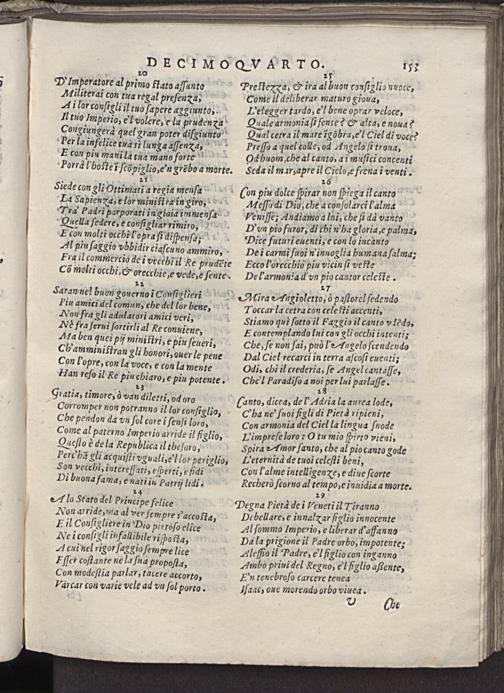 DECIMOQVARTO. 153
20
D'Imperatore al primo stato assunto
Militerai con tua regal presenza,
A i lor consigli il tuo sapere aggiunto,
Il tuo Imperio, e'l volere, e la prudenza
Congiungerà quel gran poter disgiunto
Per la infelice tua sì lunga assenza,
E con piu mani la tua mano forte
Porrà l'hoste ĩ scõpiglio, e'n grẽbo a morte.
21
Siede con gli Ottimati a regia mensa
La Sapienza, e lor ministra in giro,
Tra' Padri porporati in gioia immensa
Quella sedere, e consigliar rimiro,
E con molti occhi l'opra si dispensa;
Al piu saggio vbbidir ciascuno ammiro,
Fra il commercio de i vecchi il Re prudẽte
Cõ molti occhi, & orecchie, e vede, e sente.
22
Saran nel buon governo i Consiglieri
Piu amici del comun, che del lor bene,
Non fra gli adulatori amici veri,
Nè fra servi sortirli al Re conuiene,
Ma ben quei pij ministri, e piu seueri,
Ch'amministran gli honori, ouer le pene
Con l'opre, con la voce, e con la mente
Han reso il Re piu chiaro, e piu potente.
23
Gratia, timore, ò van diletti, od oro
Corromper non potranno il lor consiglio,
Che pendon da vn sol core i sensi loro,
Come al paterno Imperio arride il figlio,
Questo è de la Republica il thesoro,
Perc'hà gli acquisti vguali, e'l lor periglio,
Son vecchi, interessati, esperti, e fidi
Di buona fama, e nati in Patrij lidi.
24
A lo Stato del Principe felice
Non arride, ma al ver sempre s'accosta,
E il Consigliere in Dio pietoso elice
Ne i consigli infallibile risposta,
A cui nel rigor saggio sempre lice
Esser costante ne la sua proposta,
Con modestia parlar, tacere accorto,
Varcar con varie vele ad vn sol porto.
25
Prestezza, & ira al buon consiglio nuoce,
Come il deliberar maturo gioua,
L'elegger tardo, e'l bene oprar veloce,
Quale armonia si sente? & alta, e noua?
Qual cetra il mare ĩgõbra, e'l Ciel di voce?
Presso a quel colle, od Angelo si troua,
Od huom, che al canto, a i musici concenti
Seda il mar, apre il Cielo, e frena i venti.
26
Con piu dolce spirar non spiega il canto
Messo di Dio, che a consolarci l'alma
Venisse; Andiamo a lui, che si dà vanto
D'vn pio furor, di chi n'ha gloria, e palma,
Dice futuri euenti, e con lo incanto
De i carmi suoi n'inuoglia humana salma;
Ecco l'orecchio piu vicin si veste
De l'armonia d'vn pio cantor celeste.
27
Mira Angioletto, ò pastorel sedendo
Toccar la cetra con celesti accenti,
Stiamo quì sotto il Faggio il canto vdẽdo,
E contemplando lui con gli occhi intenti;
Che, se non sai, può l'Angelo scendendo
Dal Ciel recarci in terra ascosi euenti;
Odi, chi il crederia, se Angel cantasse,
Che'l Paradiso a noi per lui parlasse.
28
Canto, dicea, de l'Adria la aurea lode,
C'ha ne' suoi figli di Pietà ripieni,
Con armonia del Ciel la lingua snode
L'imprese loro: O tu mio spirto vieni,
Spira Amor santo, che al pio canto gode
L'eternità de tuoi celesti beni,
Con l'alme intelligenze, e diue scorte
Recherò scorno al tempo, e inuidia a morte.
29
Degna Pietà de i Veneti il Tiranno
Debellare, e innalzar figlio innocente
Al sommo Imperio, e liberar d'affanno
Da la prigione il Padre orbo, impotente;
Alessio il Padre, e'l figlio con inganno
Ambo priui del Regno, e'l figlio assente,
E'n tenebroso carcere tenea
Isaac, oue morendo orbo viuea.
V Che